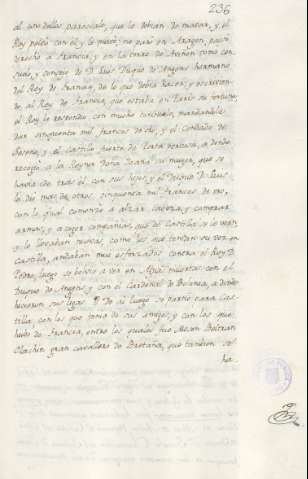 236
al uno dellos pareciole, que lo debian de matar, y el
Rey peleó con él y lo mató, no paró en Aragon, pasó
derecho a Francia, y en la tomo de Aviñon tomó con
sejo, y consejo de D. Luis Duque de Anjous hermano
del Rey de Francia, de lo que debia hacer, y escribien
do al Rey de Francia, que estaba en Paris su fortuna,
el Rey lo recibió con mucho consuelo, mandandole
dar cinquenta mil francos de oro, y el Condado de
y el castillo fuerte de Pera pertusa, a donde
recogió a la Reyna Doña Juana su muger, que se
havia ido tras él, con sus hijos, y el Duque D. Luis
le dió mas de otros cinquenta mil francos de oro,
con lo qual comenzó a alzar caveza, y comprar
armas, y a coger compañias, que de Castilla se le vean,
y le llevaban nuevas, como los que tenian su voz en
Castilla, andaban muy esforzados contra el Rey D.
Pedro, luego se bolvió a ver en Aguas muertas con el
Duque de Anjous, y con el Cardenal de Bolonia, a donde
hicieron sus ligas. Y de ai luego se partio para Cas
tilla, con los que tenia de sus amigos, y con los que
huvo de Francia, entre los quales fue Mosen Beltran
Claquin gran cavallero de Bretaña, que tambien se
ha